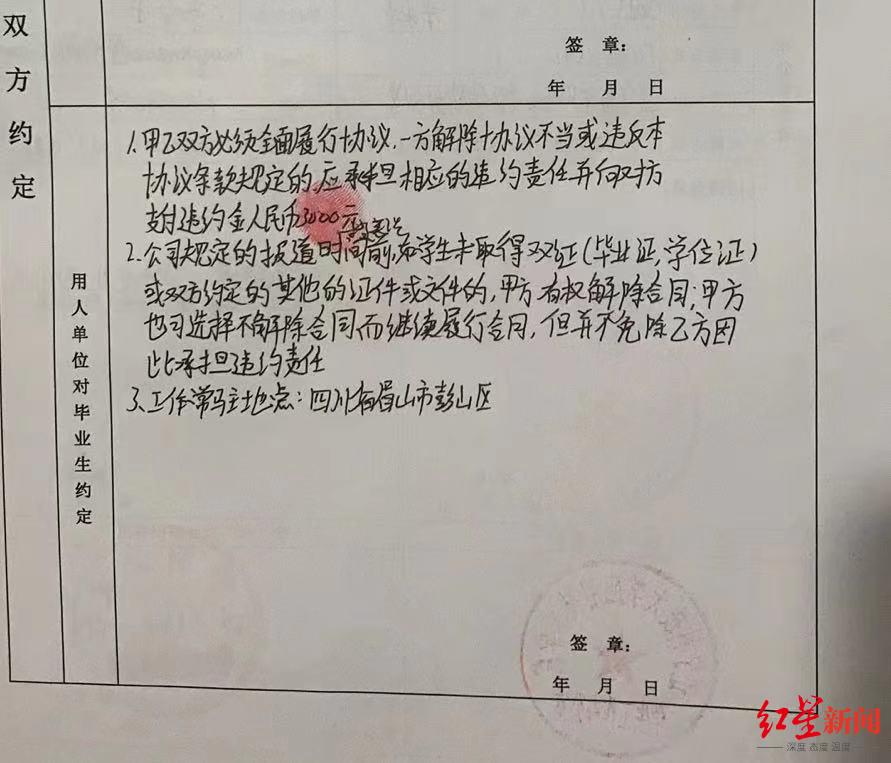 双方约定
签 章：
年 月 日
用人单位对毕业生约定
1、甲乙双方必须全面履行协议，一方解除协议不当或违反本
协议条款规定的，应承担相应的违约责任并向对方
支付违约金人民币3000元
2、公司规定的报道时间前，如学生未取得双证（毕业证，学位证）
或双方约定的其他的证件或文件的，甲方有权解除合同；甲方
也可选择不解除合同而继续履行合同，但并不免除乙方因
此承担违约责任
3、工作常驻地点：四川省眉山市彭山区
签 章：
年 月 日
红星新闻
深度 态度 温度